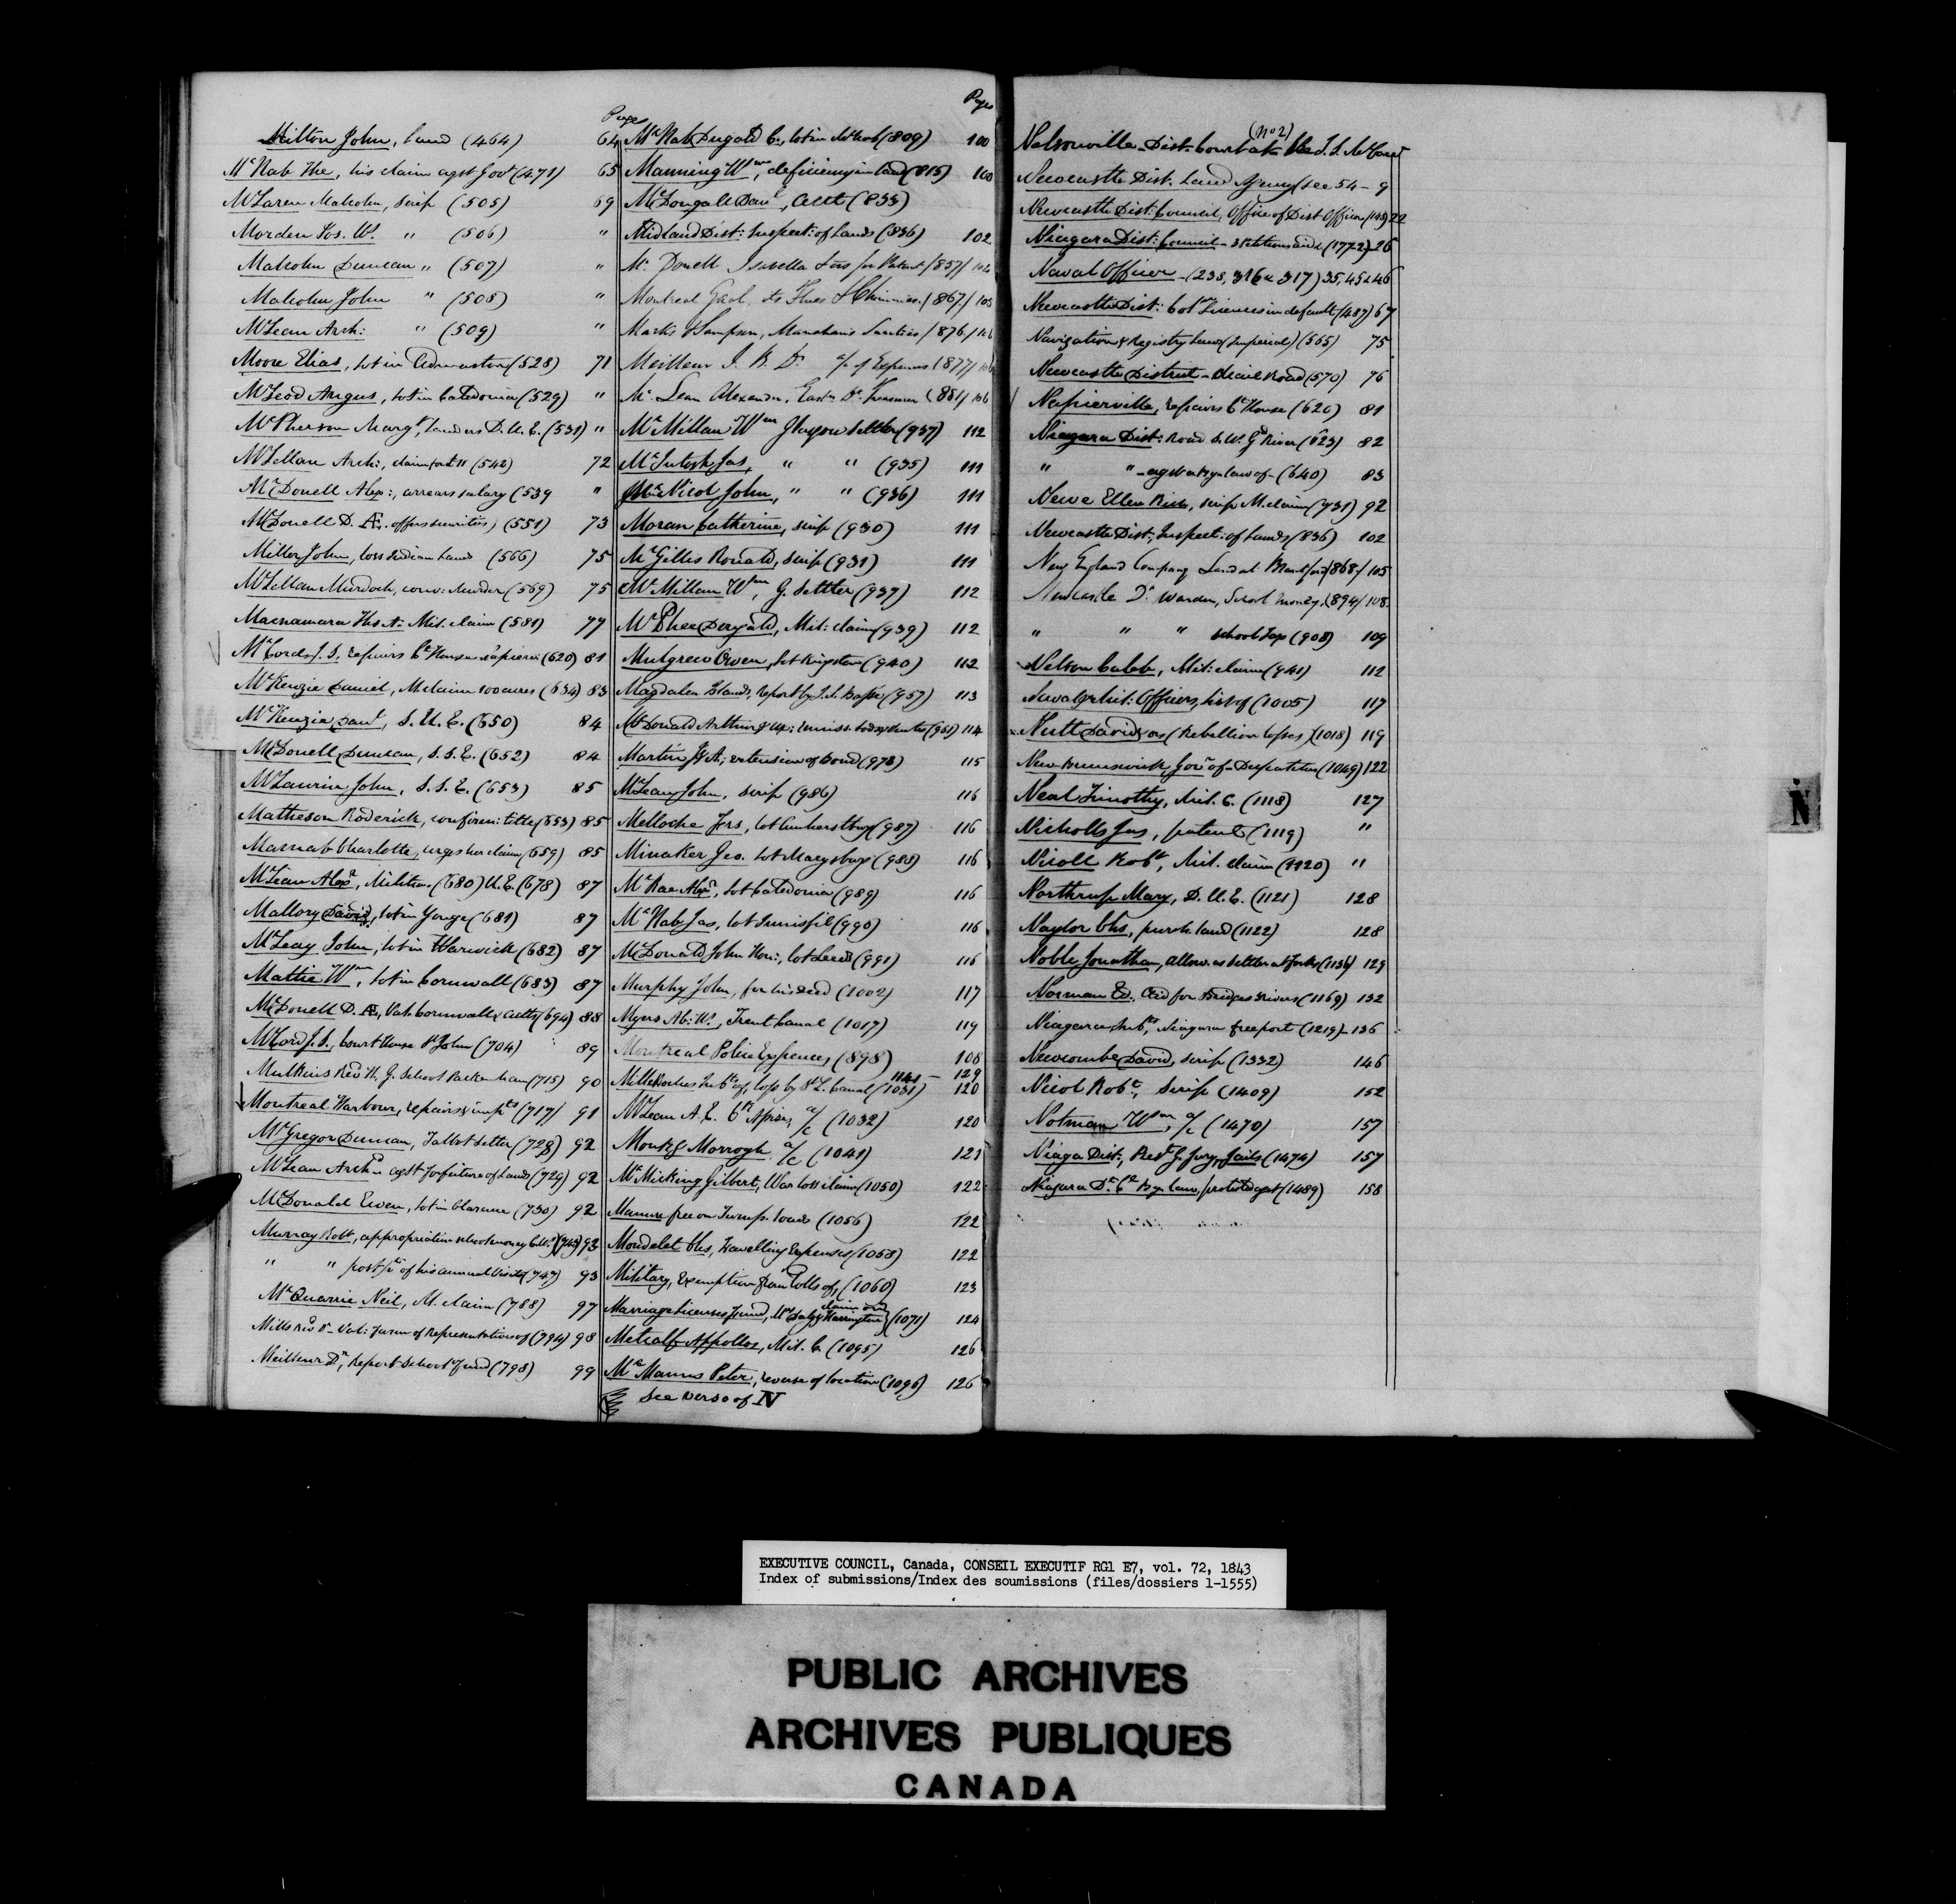 Pages
Milton John, Land (464) 64
McNab The, his claim agst Govt (471) 65
McLaren Malcolm, scrip (505) 69
Morden Jos. W. " (506) "
Malcolm Duncan " (507) "
Malcolm John " (508) "
McLean Arch: " (509) "
Moore Elias, lot in Edmaston (528) 71
McLeod Angus, lot in Caledonia (529) "
McPherson Margt, Land as D.U.E. (531) "
McLellan Arch:, claim for (542) 72
McDonell Alexr:, arrears salary (539 "
McDonell D. Æ. offers securities, (551) 73
Miller John, loss Indian Lands (566) 75
McLellan Murdock, conv: Murder (569) 75
Macnamara Ths A: Mil. claim (581) 77
McCord J. S. repairs Ct House Napierv: (620) 81
McKenzie Daniel, M. claim 100 acres (634) 83
McKenzie Danl, S.U.E. (650) 84
McDonell Duncan, S.S.E. (652) 84
McLaurin John, S.S.E. (653) 85
Matheson Roderick, confirm: title (653) 85
Macnab Charlotte, urges her claim (659) 85
McLean Alexr, Militia (680) U.E. (678) 87
Mallory David, lot in Yonge (681) 87
McLeay John, lot in Warwick (682) 87
Mattie Wm, lot in Cornwall (683) 87
McDonell D. Æ., Vah. Cornwall Canl (694) 88
McCord J. S., Court House St John (704) 89
Mulkins Revd H. G. School Pakenham (715) 90
Montreal Harbour, repairs & impts (717) 91
McGregor Duncan, Talbot Settler (728) 92
McLean Archd agst forfeiture of Lands (729) 92
McDonald Ewen, lot in Clarence (730) 92
Murray Robt, appropriation school money (743) 93
" " of his annual Visits (747) 93
McQuarrie Neil, M. claim (788) 97
Mills Revd (794) 98
Meilleur Dr, Report School Fund (798) 99
Pages
McNab Dugald C., lot in McNab (809) 100
Manning Wm, deficiency in land (815) 100
McDougall Danl, (833)
Midland Dist: Inspect: of Lands (836) 102
Mc Donell Isabella fees for Patent (857) 104
Montreal Gaol, its Flues & Chimnies (867) 105
Marks & Sampson, Marchand's Sureties (876) 106
Meilleur J. B. Dr a/c of Expenses (877) 106
Mc Lean Alexander, Eastn Dt Treasurer (881) 106
McMillan Wm Glasgow Settler (937) 112
McIntosh Jas, " " (935) 111
McNicol John, " " (936) 111
Moran Catherine, scrip (930) 111
McGillis Ronald, scrip (931) 111
McMillan Wm, G. Settler (937) 112
McPhee Dugald, Mil: claim (939) 112
Mulgrew Owen, lot Kingston (940) 112
Magdalen Islands, report by (957) 113
McDonald Arthur (961) 114
Martin J A; extension of bond (978) 115
McLean John, scrip (986) 116
Melloche Frs, lot Amherstburg (987) 116
Minaker Geo. lot Marysburg (988) 116
McRae Alexr, lot Caledonia (989) 116
McNab Jas, lot Innisfil (990) 116
McDonald John Hon:, lot Leeds (991) 116
Murphy John, for his deed (1002) 117
Myers Ab: W., Trent Canal (1017) 119
Montreal Police Expences, (898) 108
1141 – 129
Milleroches Inbts of, loss by St L. Canal (1031) 120
McLean A. E. a/c (1032) 120
Monk & Morrogh a/c (1041) 121
McMicking Gilbert, War loss claim (1050) 122
Manure free on Turnp. roads (1056) 122
Mondelet Chs, Travelling Expenses (1058) 122
Military, exemption from Tolls of, (1060) 123
Marriage Licenses Fund, Mrs Daly & Harrington claim on (1071) 124
Metcalf Appollos, Mil. C. (1095) 126
McManus Peter, reverse of location (1096) 126
See verso of N
(No 2)
Nelsonville Dist. Court at
Newcastle Dist. Land Agency (see 54 – 9
Newcastle Dist: Council, Office of Dist Officer (148) 22
Niagara Dist: Council – 3 Petitions and (1772) 26
Naval Officer – (238, 316 & 317) 35, 45 & 46
Newcastle Dist: Colr Licenses in default (487) 67
Navigation & Registry Laws (Imperial) (565) 75
Newcastle District – Mail Road (570) 76
Napierville, repairs Ct House (620) 81
Niagara Dist: Road S. W. Gd River (623) 82
" " – agst a Bye law of – (640) 83
Newe Ellen Rich, scrip M. claim (731) 92
Newcastle Dist; Inspect: of Lands (836) 102
New England Company Land at Brantford (868) 105
Newcastle Dt Warden, School money (894) 108
" " " school Tax (908) 109
Nelson Caleb, Mil: claim (941) 112
Naval & Mil: Officers, list of (1005) 117
Nutt David (Rebellion losses) (1018) 119
New Brunswick, Govr of – Despatches (1049) 122
Neal Timothy, Mil. C. (1118) 127
Nicholls Jas, patent (1119) "
Nicoll Robt, Mil. claim (1120) "
Northrup Mary, D.U.E. (1121) 128
Naylor Chs, purch. land (1122) 128
Noble Jonathan, allow. as settler at Forks (1136) 129
Norman Ed. Aid for Bridges Rivers (1169) 132
Niagara Inbts, Niagara free port (1219) – 136
Newcombe David, scrip (1332) 146
Nicol Robt, scrip (1409) 152
Notman Wm, a/c (1470) 157
Niaga Dist; Rept G. Jury, Jails (1474) 157
Niagara Dt Cl Bye law, protest agst (1489) 158
N
EXECUTIVE COUNCIL, Canada, CONSEIL EXECUTIF RG1 E7, vol. 72, 1843
Index of submissions/Index des soumissions (files/dossiers 1-1555)
PUBLIC ARCHIVES
ARCHIVES PUBLIQUES
CANADA